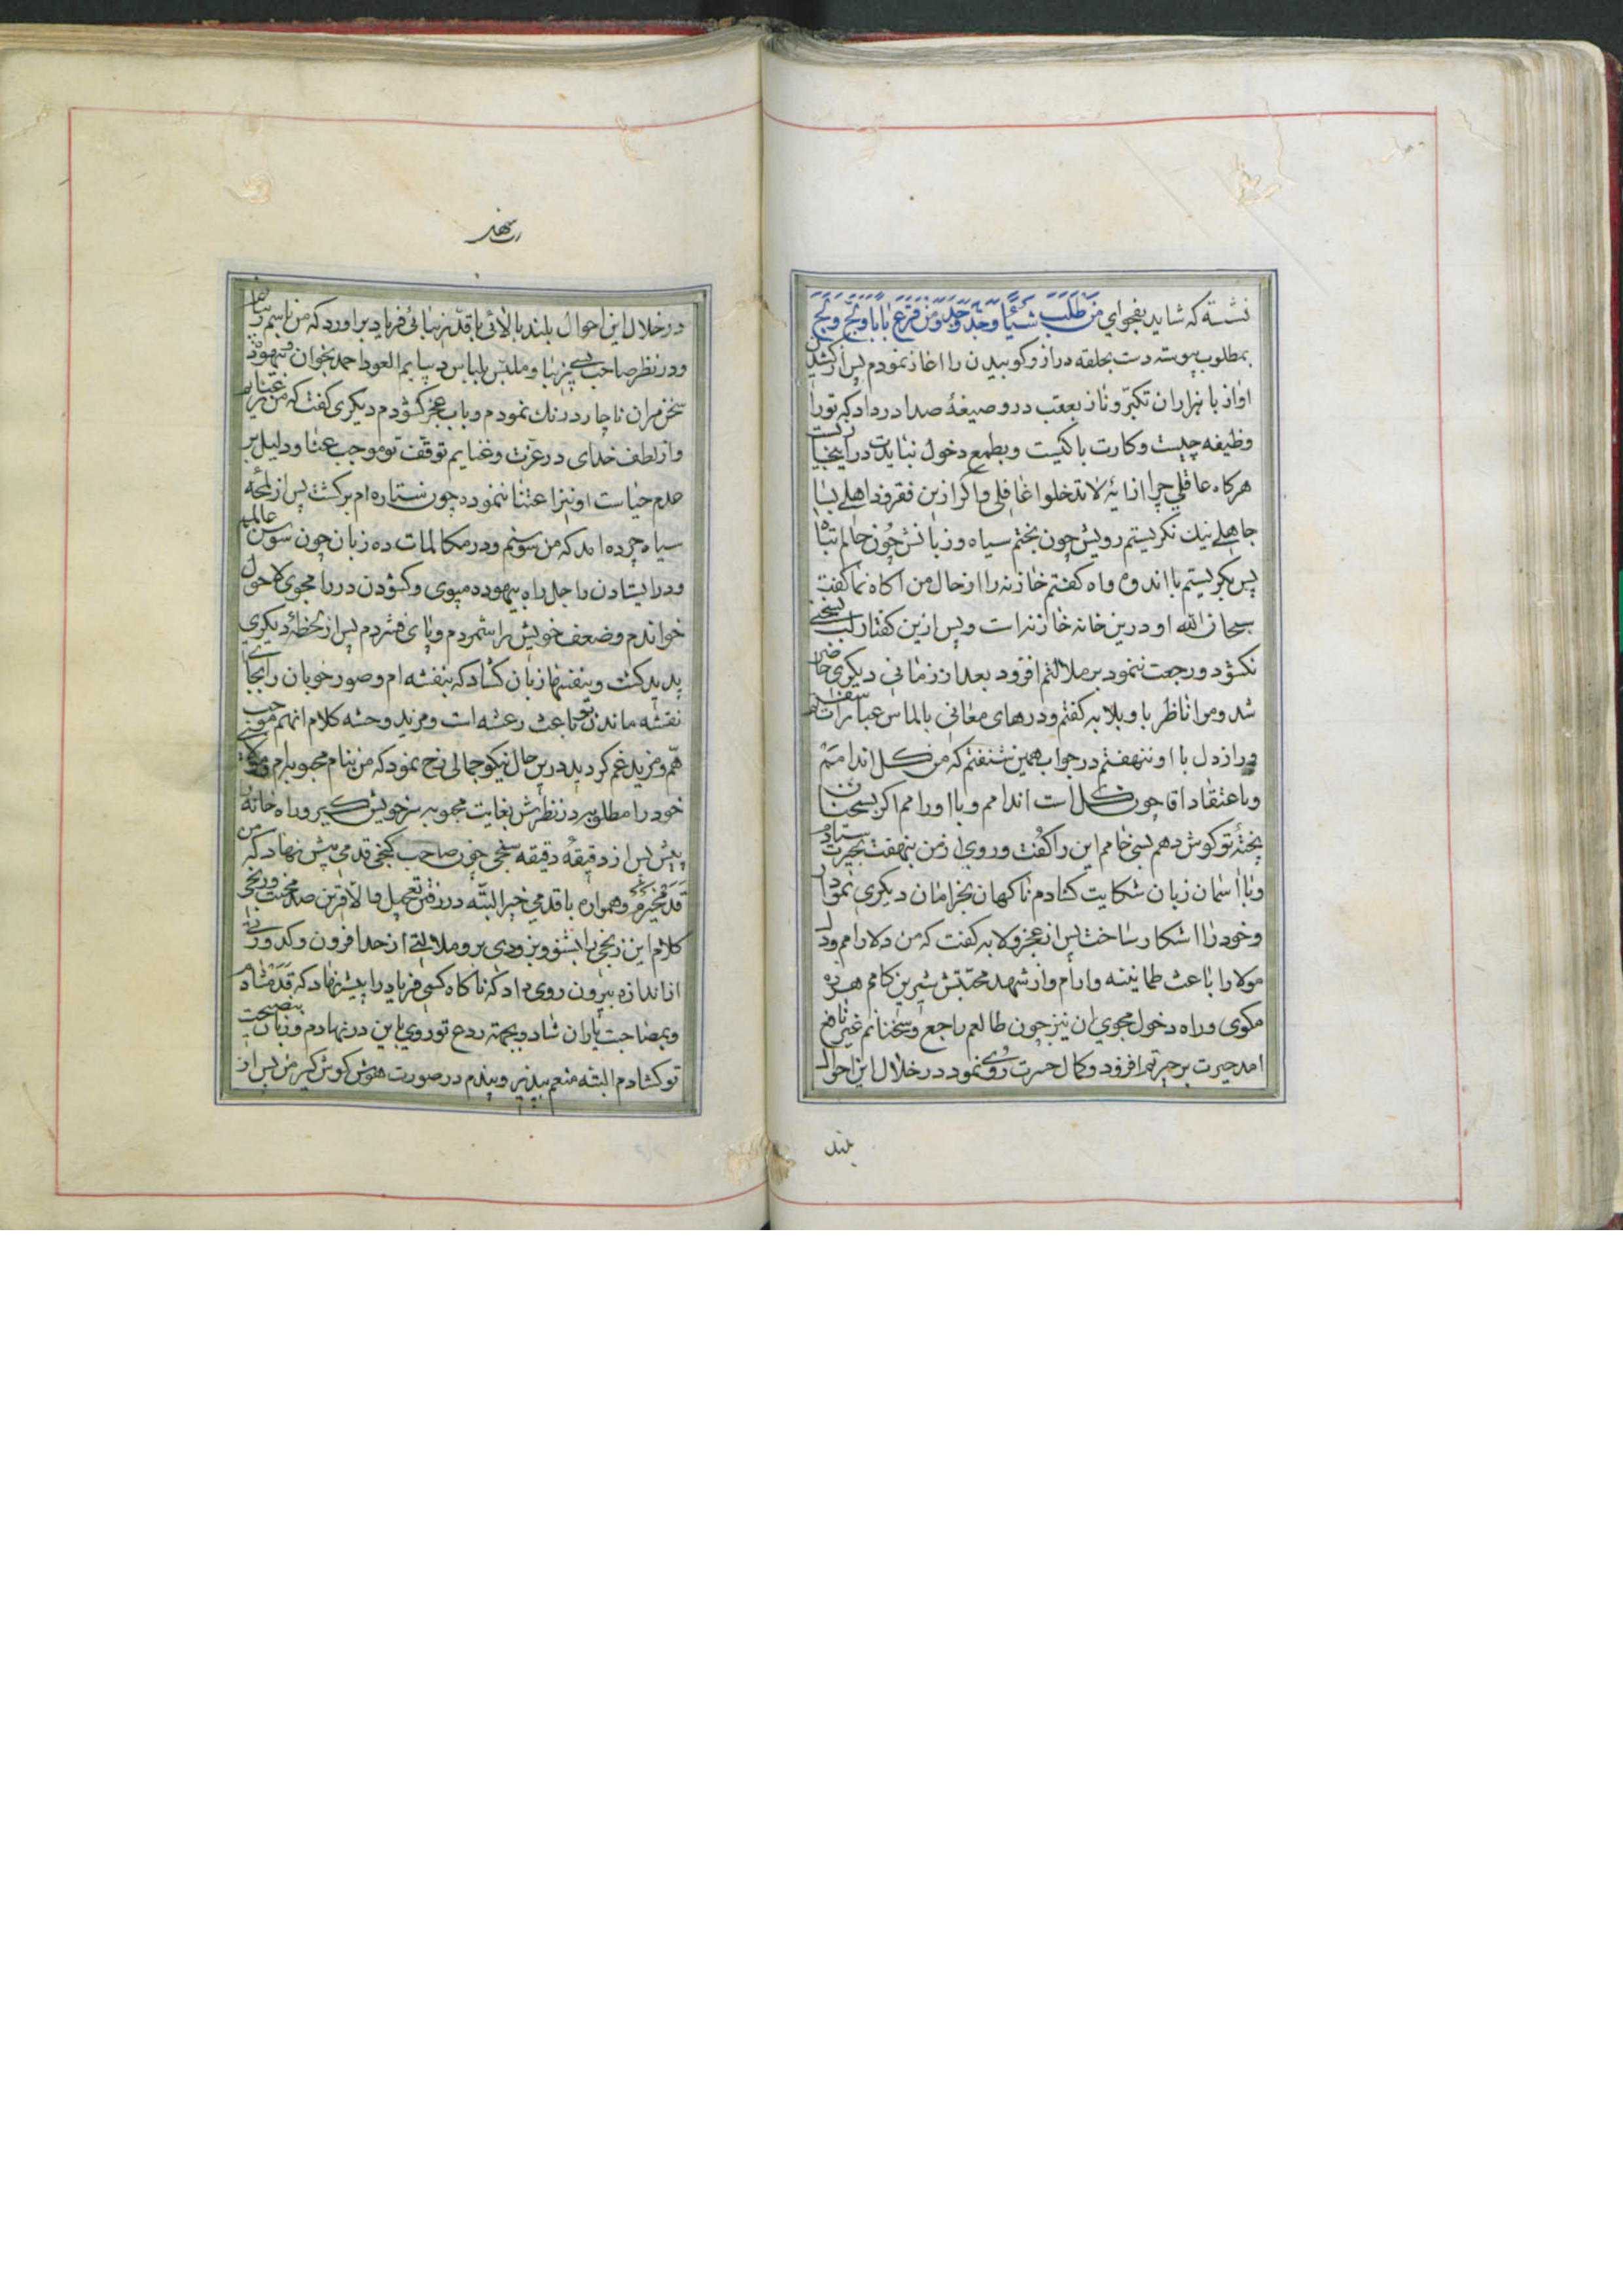 نشسته که شاید بفحوای مَن طَلَبَ شَیئًا وَجَدَّ وَجَدَ وَ مَن قَرَعَ بابًا وَ لَجَّ وَلَجَ
بمطلوب پیوسته دست بحلقه دراز و کوبیدن را اغاز نمودم پس از کشیدن
اواز با هزاران تکبّر و ناز بعقب در وصیفهٔ صدا در داد که تو را
وظیفه چیست و کارت با کیست و بطمع دخول نبایدت در اینجا
هرکاه عاقلی چرا از ایهٔ لا تدخلوا غافلی و اکر ازین فقره ذاهلی بسا
جاهلی نیک نکریستم رویش چون بختم سیاه و زبانش چون حالم تباه
پس بکریستم با اندوه و اه کفتم خازنه را از حال من اکاه نما کفت
سبحان الله او درین خانه خازنه است و پس ازین کفتار لب بسخنی
نکشود و رجعت ننمود بر ملالتم افزود بعد از زمانی دیکری حاضر
شد و مرا ناظر با او بلابه کفتم و درهای معانی بالماس عبارات سفتم
و راز دل با او ننهفتم در جواب همین شنفتم که من کل اندامستم
و باعتقاد اقا چون کل است اندامم و با او رامم اکر بسخنان
پختهٔ تو کوش دهم بسی خامم این را کفت و روی از من بنهفت بحیرت ستادم
و با اسمان زبان شکایت کشادم ناکهان بخرامان دیکری نمودار
و خود را اشکار ساخت پس از عجز و لابه کفت که من دلارامم و دل
مولا را باعث طمانینه و ارام و از شهد محبّتش شیرین کامم هرزه
مکوی و راه دخول مجوی ان نیز چون طالعم راجع و سخنانم غیر نافع
امد حیرت بر حیرتم افزود و کمال حسرت روی نمود در خلال این احوال
بلند
در خلال این احوال بلند بالائی با قدّ زیبائی فریاد براورد که من باسم زیبا
و در نظر صاحب پر بها و ملبّس بلباس دیبایم العود احمد بخوان و بیهوده
سخن مران ناچار درنک نمودم و باب عجز کشودم دیکری کفت که من
و از لطف خدای در عزّت و غنایم توقف تو موجب عنا و دلیل بر
عدم حیاست او نیز اعتنا ننموده چون ستاره ام برکشت پس از لمحهٔ
سیاه چرده امد که من سوسنم و در مکالمات ده زبان چون سوسن
و در ایستادن راجل راه بیهوده مپوی و کشودن در را مجوی لاحول
خواندم و ضعف خویش را شمردم و پای فشردم پس از لحظهٔ دیکری
پدید کشت و بنفشها زبان کشاد که بنفشه ام و صور خوبان را اینجا
نقشه ماندن تو باعث رعشه است و مزید وحشه کلام انهم موجب
همّ و مزید غم کردید درین حال نیکو جمالی رخ نمود که من بنام محبوبه ام
خود را مطلوبه در نظرش بغایت محجوبه سر خویش کیر و راه خانهٔ
پیش پس از دقیقهٔ دقیقه سنجی چون صاحب کنجی قدمی پیش نهاد که من
قدم خیرم و همواره با قدمی خیر البتّه در رفتن تعجیل والا قرین صد محنت و رنجی
کلام این زنجی را بشنو و بزودی برو ملالتی از حد افزون و کدورتی
از اندازه بیرون روی داد که ناکاه کسی فریاد را پیشنهاد که قدمشادم
و بمصاحبت یاران شاد و بجهته ردع تو روی باین در نهادم و زبان بنصیحت
تو کشادم البته منعم بپذیر و پندم در صورت هوش کوش کیر من پس از